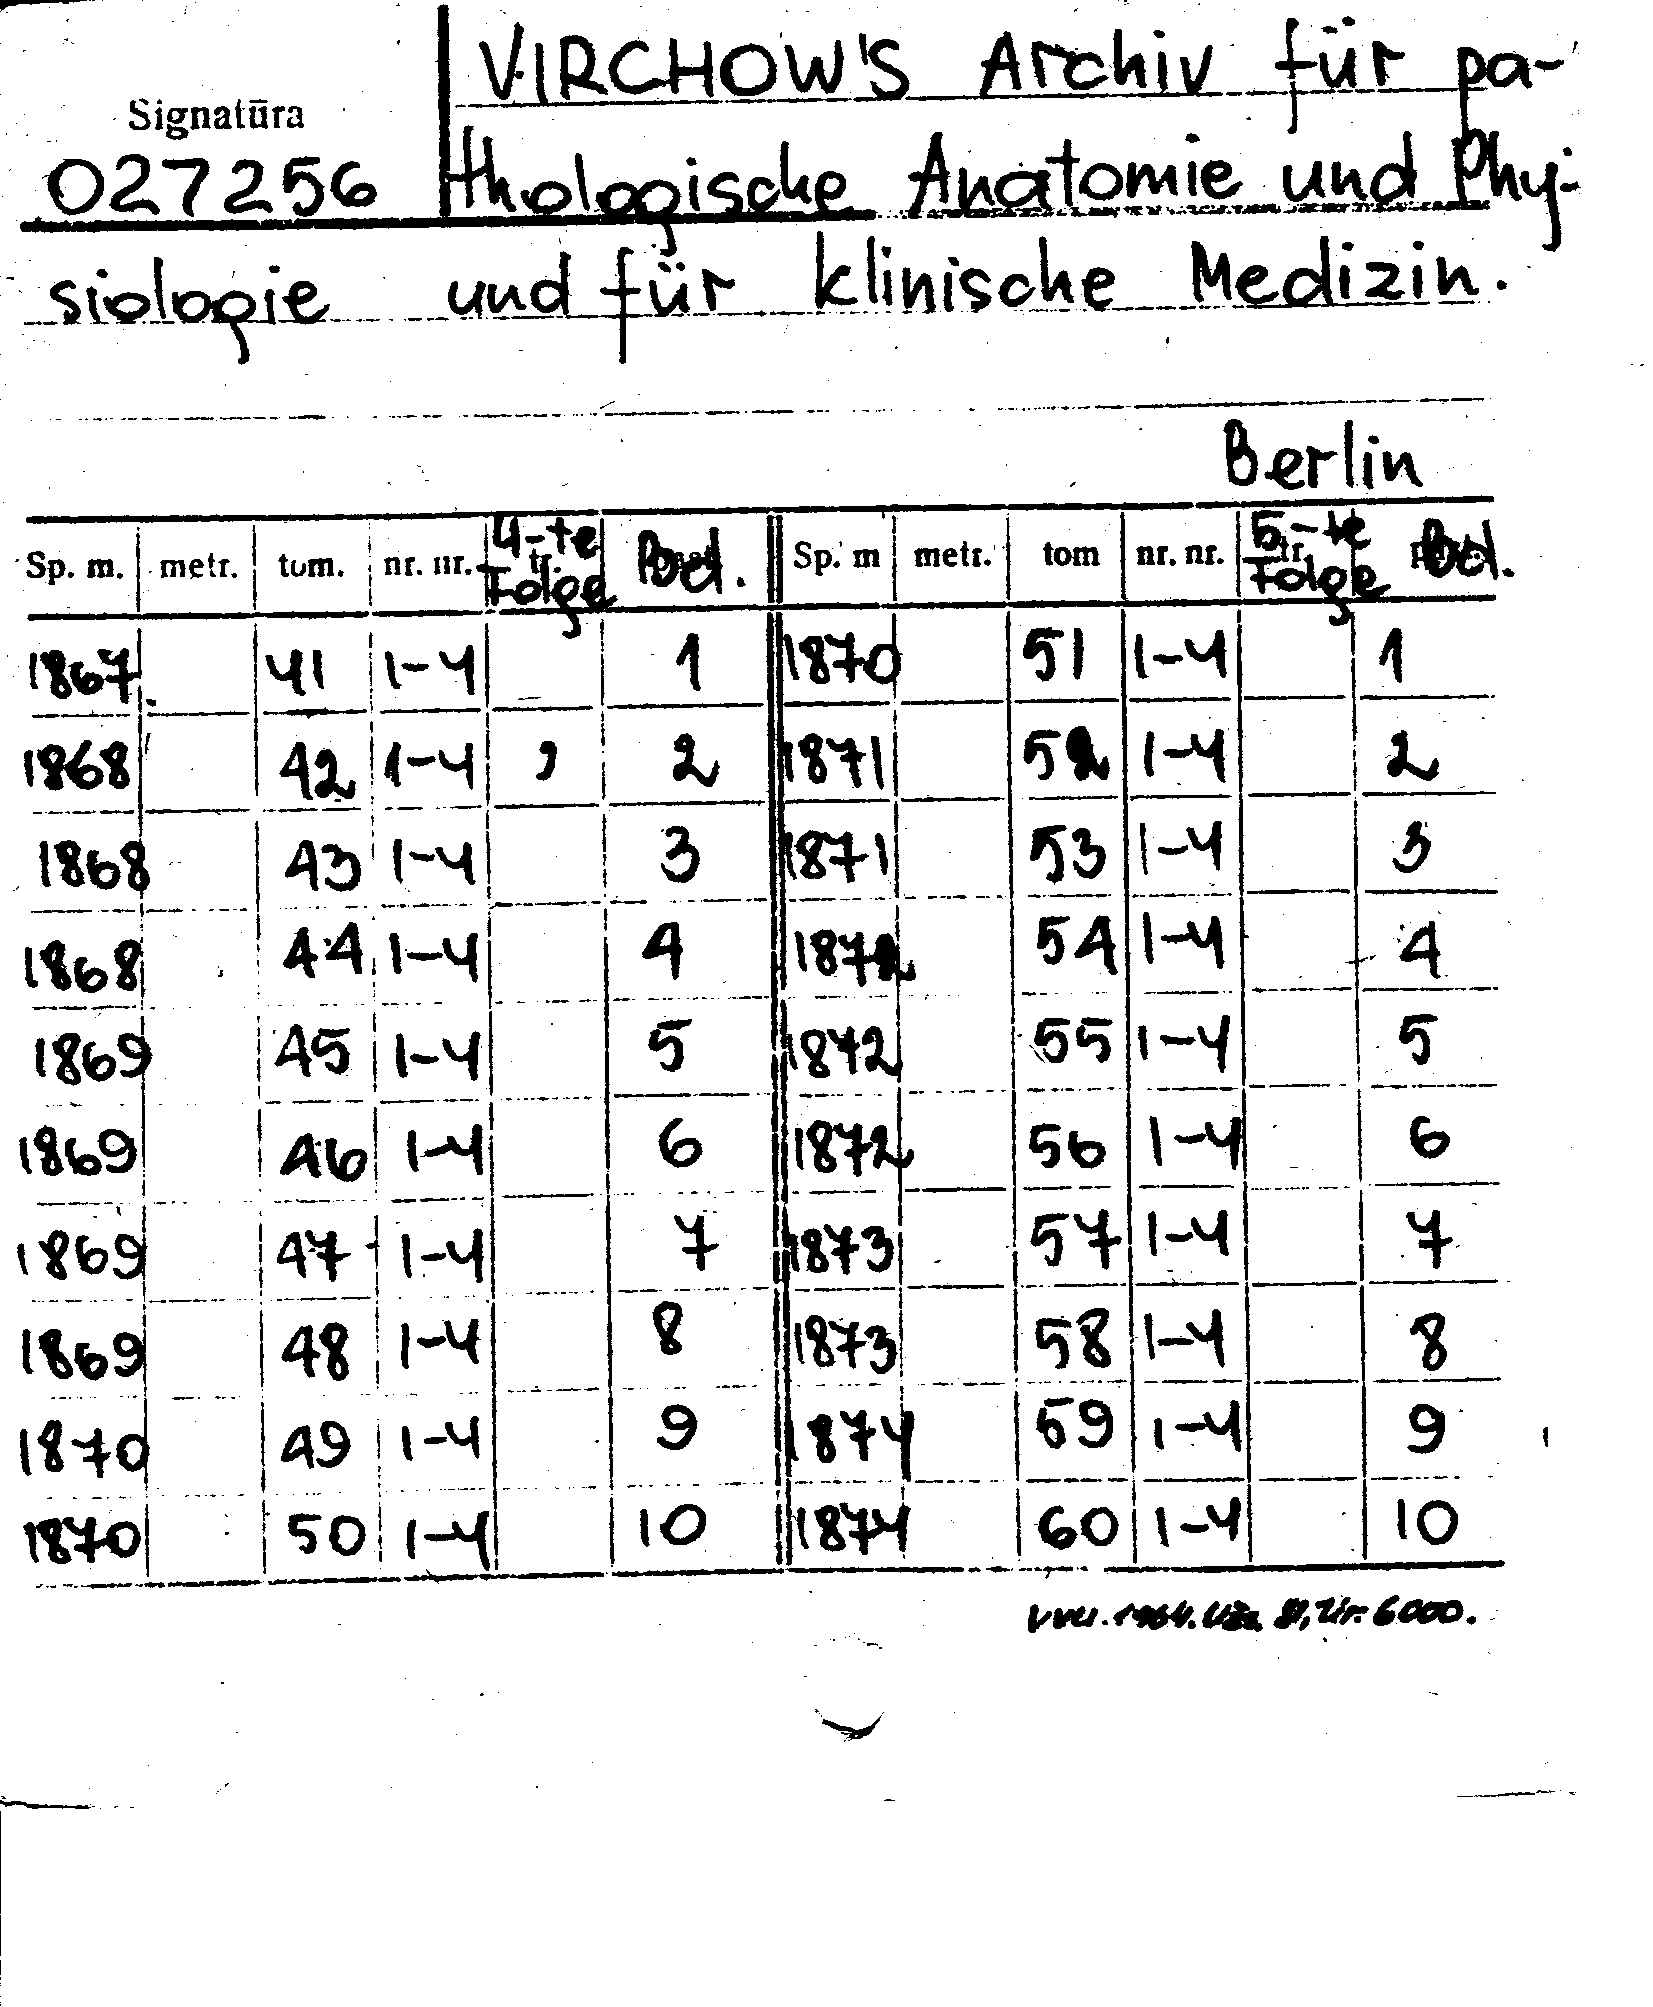 VIRCHOW'S Archiv für pa-
Signatūra
027256 thologische Anatomie und Phy-
siologie und für klinische Medizin.
Berlin
Sp. m. metr. tom. nr. nr. 4-te Folge Bd. Sp. m metr. tom nr. nr. 5-te Folge Bd.
1867 41 1-4 1 1870 51 1-4 1
1868 42 1-4 2 1871 52 1-4 2
1868 43 1-4 3 1871 53 1-4 3
1868 44 1-4 4 1872 54 1-4 4
1869 45 1-4 5 1872 55 1-4 5
1869 46 1-4 6 1872 56 1-4 6
1869 47 1-4 7 1873 57 1-4 7
1869 48 1-4 8 1873 58 1-4 8
1870 49 1-4 9 1874 59 1-4 9
1870 50 1-4 10 1874 60 1-4 10
1964. 6000.